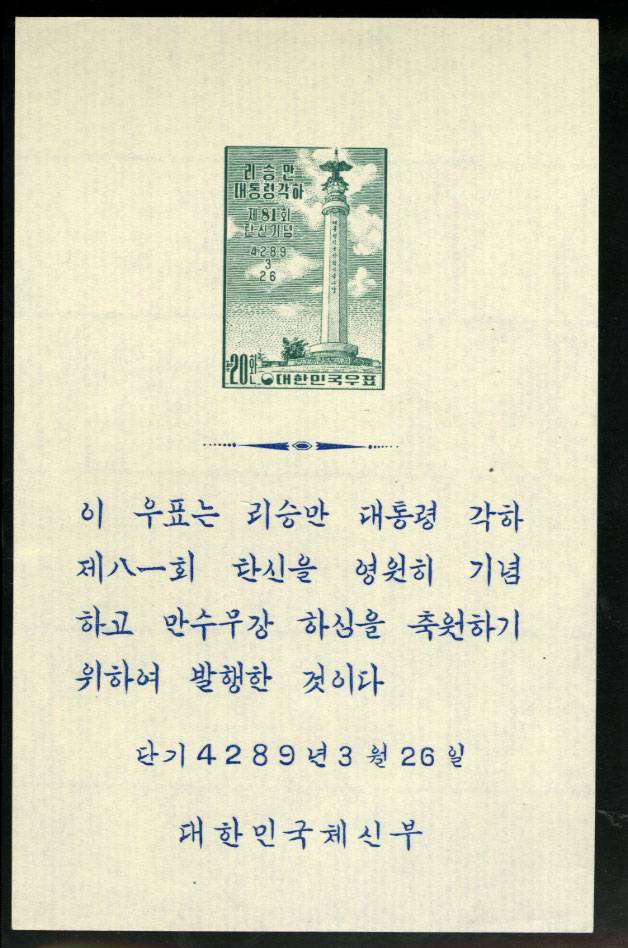 리승만
대통령각하
제81회
탄신기념
4289
3
26
20환
대한민국우표
이 우표는 리승만 대통령 각하
제八一회 탄신을 영원히 기념
하고 만수무강 하심을 축원하기
위하여 발행한 것이다
단기 4289년 3월 26일
대한민국체신부